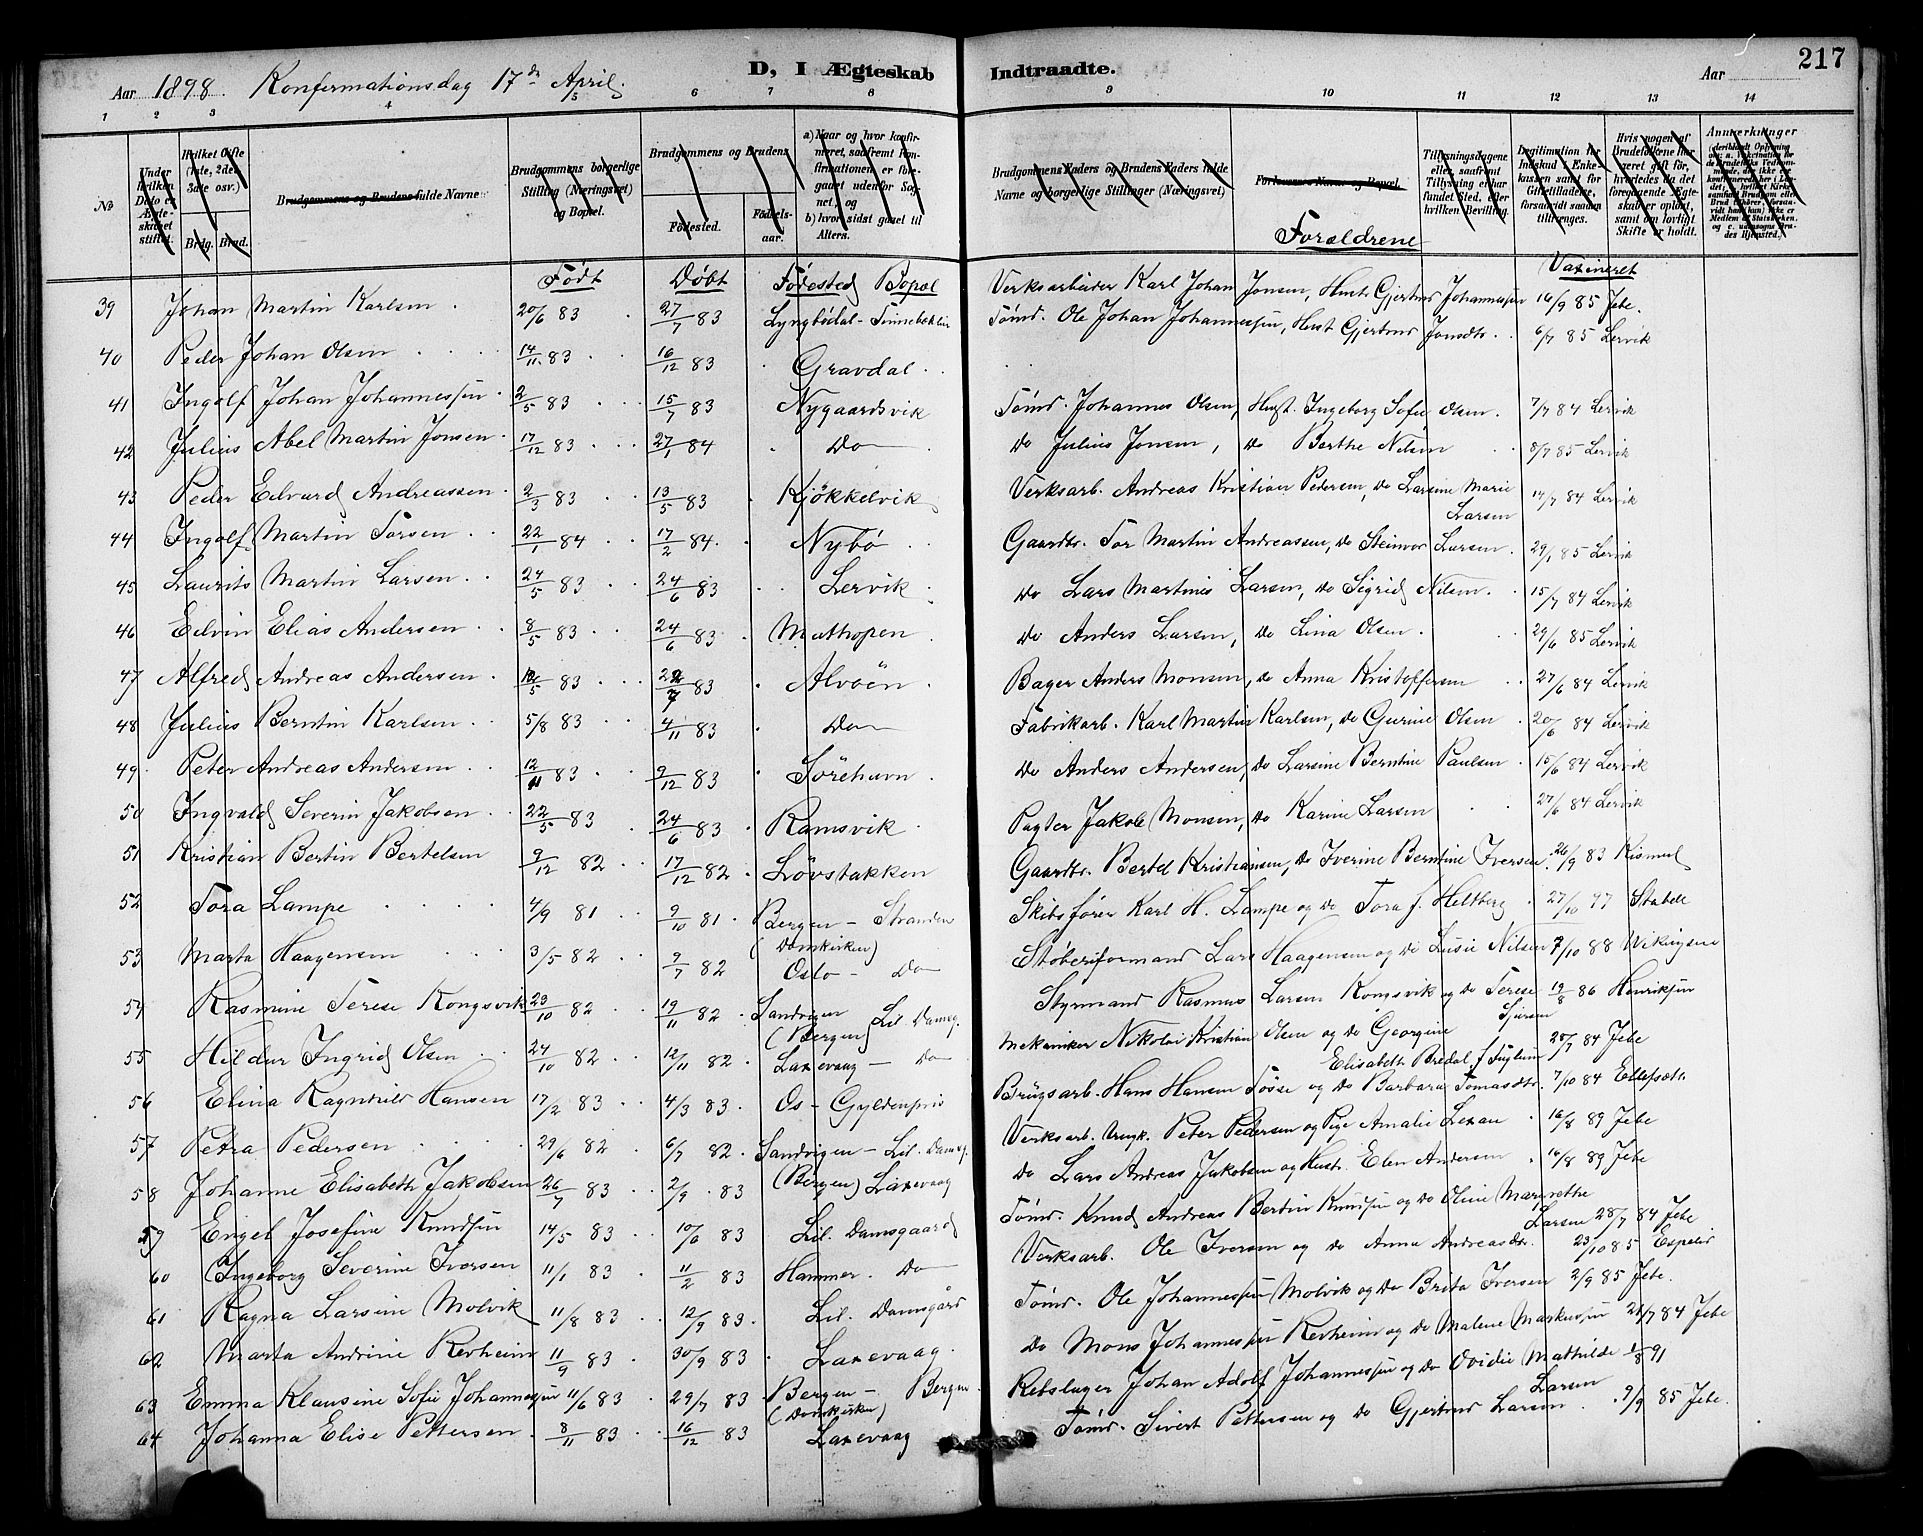 217
Aar 1898. Konfermationsdag 17de April.
D, I Ægteskab Indtraadte.
Aar
1 2 3 4 5 6 7 8 9 10 11 12 13 14
No
Under hvilken Dato er Ægteskabet stiftet.
Hvilket Gifte (1ste, 2det, 3die osv.)
Brdg. Brud.
Brudgommens og Brudens fulde Navne
Brudgommens borgerlige Stilling (Næringsvei) og Bopæl.
Brudgommens og Brudens
Fødested. Fødsels-aar.
a) Naar og hvor konfirmeret, saafremt konfirmationen er foregaaet udenfor Sognet, og
b) hvor sidst gaaet til Alters.
Brudgommens Faders og Brudens Faders fulde Navne og borgerlige Stillinger (Næringsvei)
Forlovernes Navne og Bopæl.
Forældrene
Tillysningsdagene eller, saafremt Tillysning ei har fundet Sted, efter hvilken Bevilling.
Legitimation for Indskud i Enkekassen samt for Giftetilladelse, forsaavidt saadan tiltrænges.
Hvis nogen af Brudefolkene har været gift før, hvorledes da det foregaaende Ægteskab er opløst, samt om lovligt Skifte er holdt.
Anmerkninger
Født Døbt Fødested Bopæl Vaxineret
39 Johan Martin Karlsen 20/6 83 27/7 83 Lyngbødal - Verksarbeider Karl Johan Jonsen, Hust. Gjertrud Johannessen 16/9 85 Jebe.
40 Peder Johan Olsen 14/11 83 16/12 83 Gravdal Tømd. Ole Johan Johannessen, Hust Gjertrud Jonsdtr. 6/7 85 Lervik
41 Ingolf Johan Johannessen 2/5 83 15/7 83 Nygaardsvik Tømd. Johannes Olsen, Hust. Ingeborg Sofie Olsen. 7/7 84 Lervik
42 Julius Abel Martin Jonsen 17/12 83 27/1 84 Do Do Julius Jonsen, Do Berthe Nilsen 8/7 85 Lervik
43 Peder Edvard Andreassen 2/3 83 13/5 83 Kjøkkelvik Verksarb. Andreas Kristian Pedersen, Do Larsine Marie Larsen 14/7 84 Lervik
44 Ingolf Martin Torsen 22/1 84 17/2 84 Nybø Gaardbr. Tor Martin Andreassen, Do Steinvor Larsen 29/1 85 Lervik
45 Laurits Martin Larsen 24/5 83 24/6 83 Lervik Do Lars Martinus Larsen, Do Sigrid Nilsen 15/7 84 Lervik
46 Edvin Elias Andersen 8/5 83 24/6 83 Mathopen Do Anders Larsen, Do Lina Olsen. 29/6 85 Lervik
47 Alfred Andreas Andersen 83 83 Alvøen Bager Anders Monsen, Do Anna Kristoffersen 27/6 84 Lervik
48 Julius Berntin Karlsen 5/8 83 4/11 83 Do Fabrikarb. Karl Martin Karlsen, Do Gurine Olsen 20/6 84 Lervik
49 Peter Andreas Andersen 12/11 83 9/12 83 Sørehavn Do Anders Andersen, Do Larsine Berntine Paulsen 15/6 84 Lervik
50 Ingvald Severin Jakobsen 22/5 83 24/6 83 Ramsvik Pagter Jakob Monsen, Do Karine Larsen 27/6 84 Lervik
51 Kristian Bertin Bertelsen 9/12 82 17/12 82 Løvstakken Gaardbr. Bertel Kristiansen, Do Iverine Berntine Iversen 26/9 83 Rismul
52 Tora Lampe 4/9 81 9/10 81 Bergen - Stranden (Domkirken) Skibsfører Karl H. Lampe og Do Tora f. Heltberg 27/10 97 Stabell
53 Marta Haagensen 3/5 82 9/7 82 Oslo - Do Støberiformand Lars Haagensen og Do Lusie Nilsen 7/10 88 Wikingsen
54 Rasmine Terese Kongsvik 23/10 82 19/11 82 Sandvigen (Bergen) Lil. Damsg. Styrmand Rasmus Larsen Kongsvik og Do Terese Sjursen 19/8 86 Henriksen
55 Hildur Ingrid Olsen 24/10 82 12/11 82 Laxevaag - Do Mekaniker Nikolai Kristian Olsen og Do Georgine Elisabeth Bredal f Fuglum 20/7 84 Jebe
56 Elina Ragnhild Hansen 17/2 83 4/3 83 Os - Gyldenpris Brugsarb. Hans Hansen Tøsse og Do Barbara Tomasdtr. 7/10 84 Ellefsdtr.
57 Petra Pedersen 29/6 82 6/7 82 Sandvigen - Lil. Damsg. (Bergen) Verksarb. Ungk. Peter Pedersen og Pige Amalie Lexau 16/8 89 Jebe
58 Johanne Elisabeth Jakobsen 26/7 83 2/9 83 Laxevaag Do Lars Andreas Jakobsen og Hustr. Elen Andersen 16/8 89 Jebe
59 Engel Josefine Knudsen 14/5 83 10/6 83 Lil. Damsgaard Tømd. Knud Andreas Bertin Knudsen og Do Oline Margrethe Larsen 28/7 84 Jebe
60 Ingeborg Severine Iversen 11/1 83 11/2 83 Hammer. Do Verksarb. Ole Iversen og Do Anna Andreasdtr. 23/10 85 Espelid
61 Ragna Larsine Molvik 11/8 83 12/9 83 Lil. Damsgård Tømd. Ole Johannessen Molvik og Do Brita Iversen 2/9 85 Jebe.
62 Marta Andrine Revheim 11/9 83 30/9 83 Laxevaag Do Mons Johannessen Revheim og Do Malene Markussen 21/7 84 Jebe
63 Emma Klausine Sofie Johannessen 11/6 83 29/7 83 Bergen - Bergen (Domkirken) Rebslager Johan Adolf Johannessen og Do Ovidie Mathilde Larsen 1/8 91
64 Johanna Elise Pettersen 8/11 83 16/12 83 Laxevaag Tømd. Sivert Pettersen og Do Gjertrud Larsen 9/9 85 Jebe.